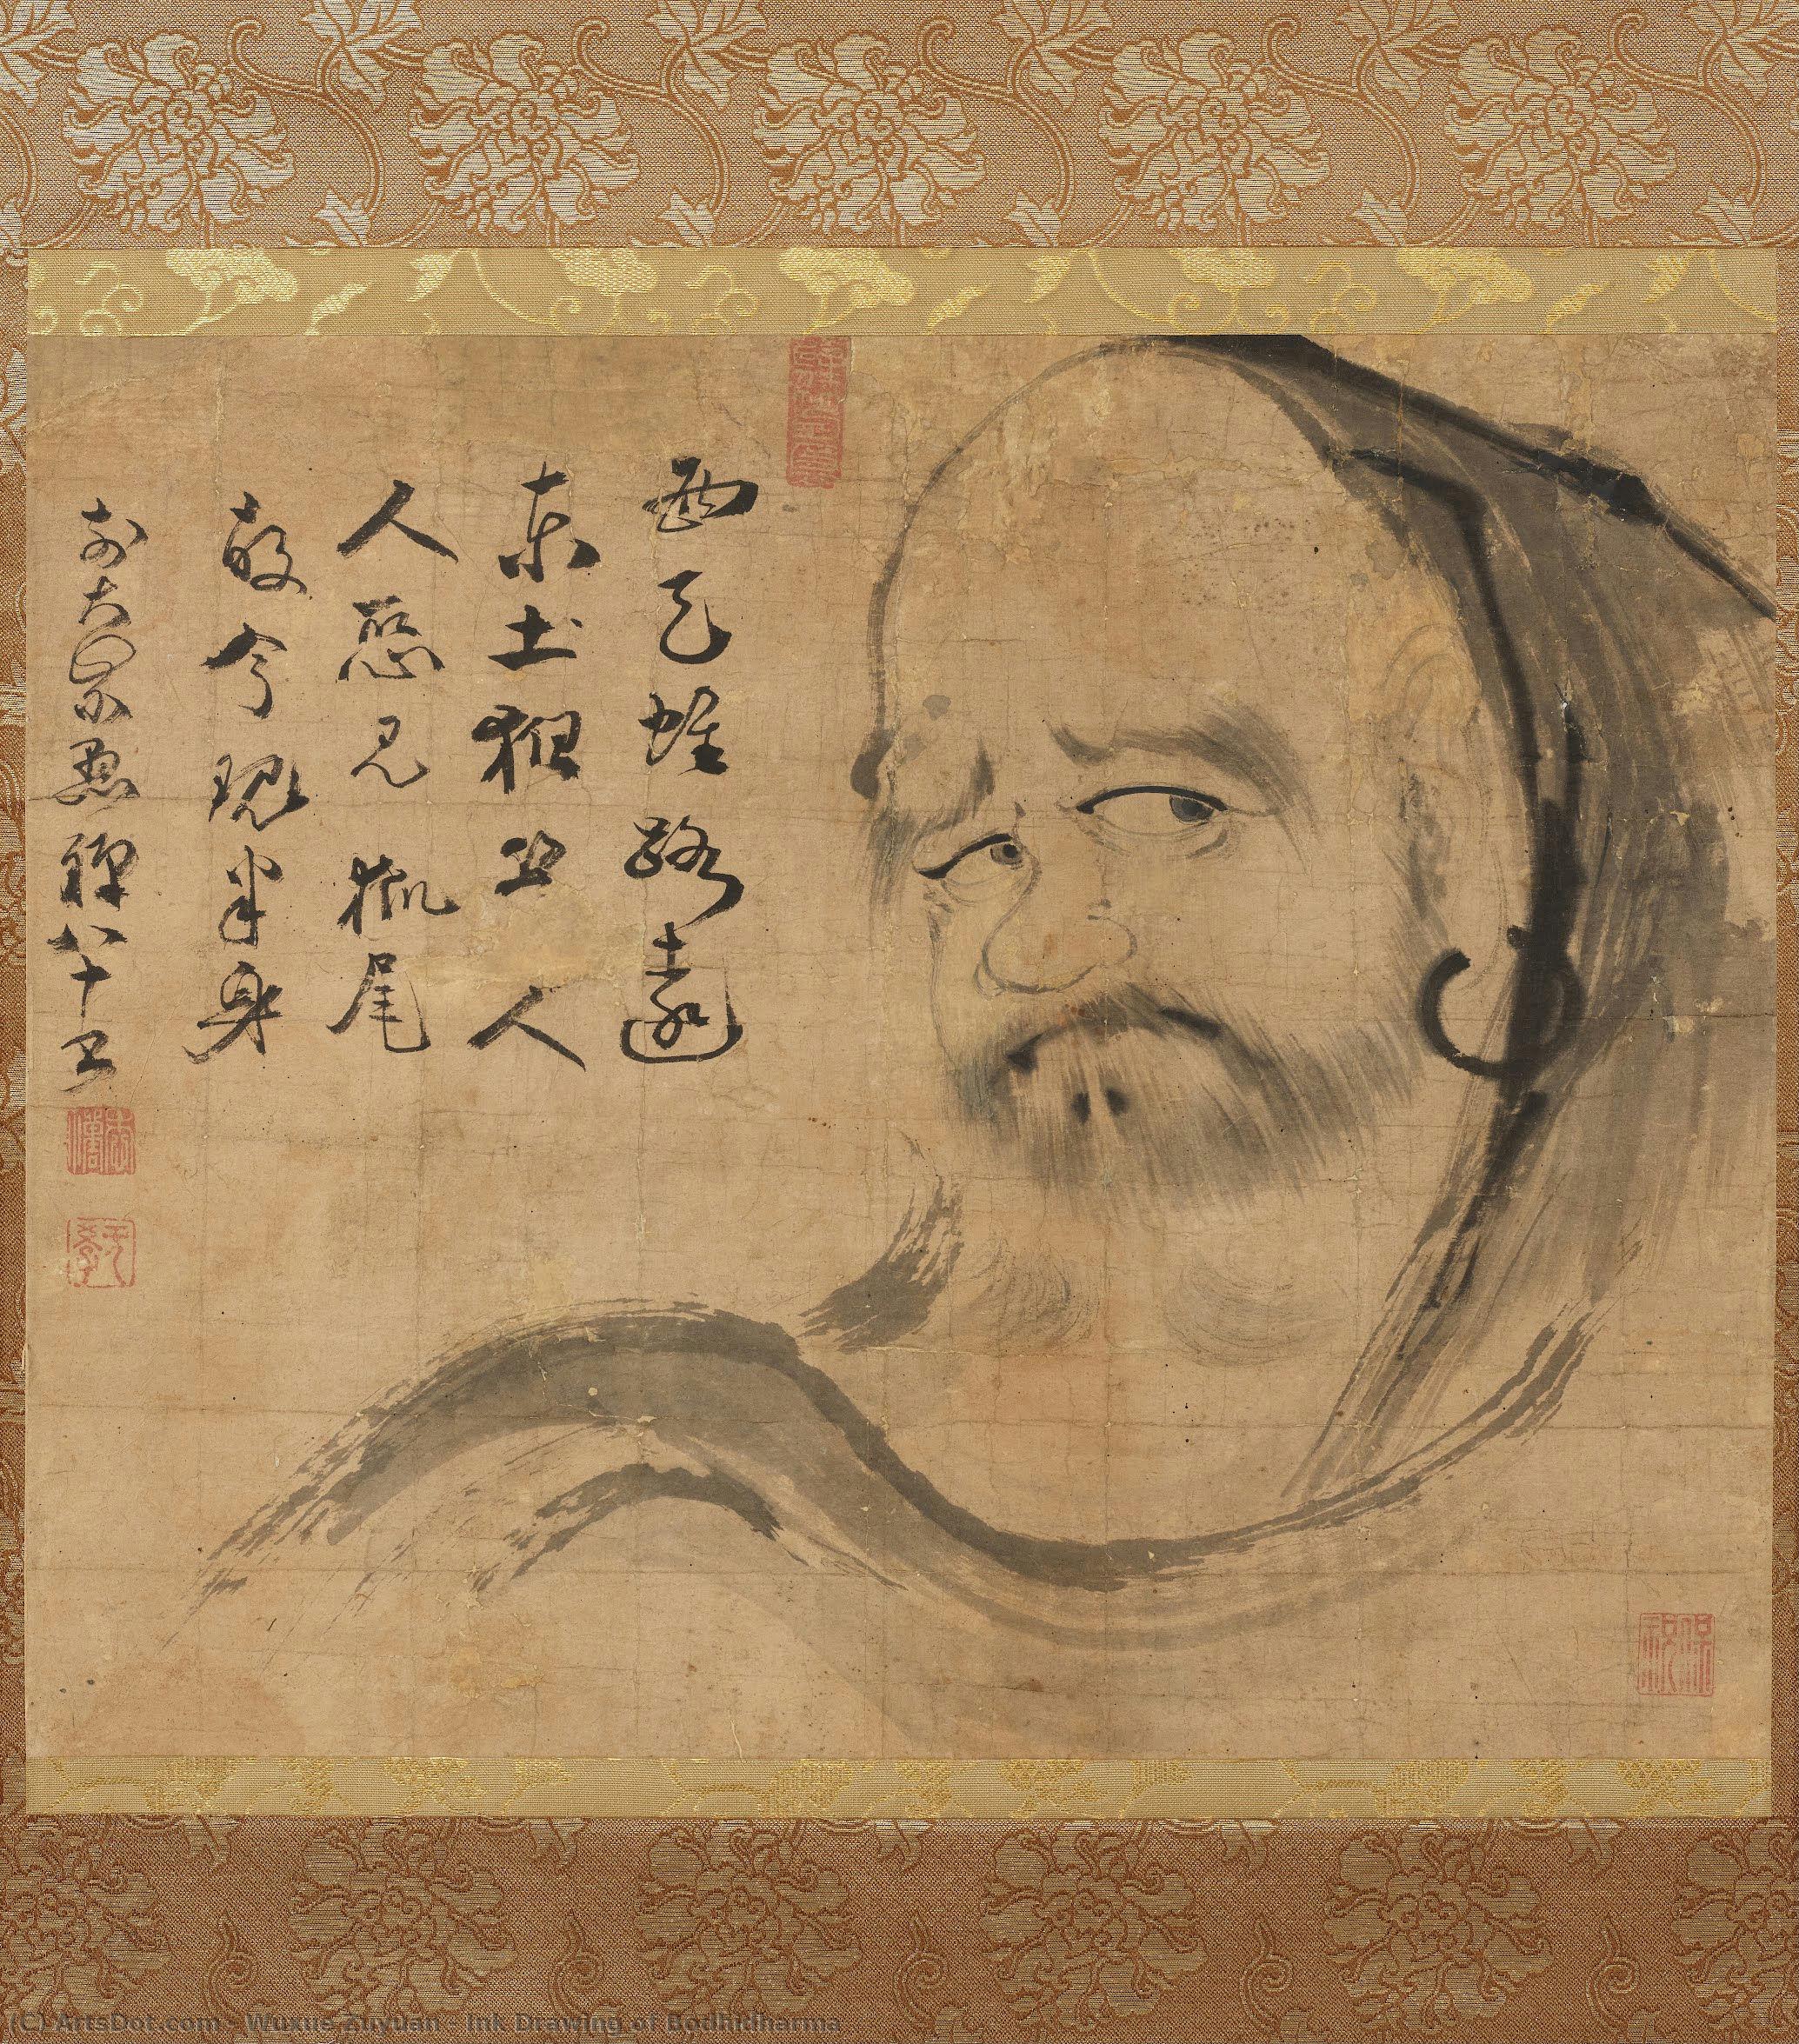 西天雖路遠
東土人
人恐見狐尾
故今現半身
前大宗愚禪八十
(C) ArtsDot.com - Wuxue Zuyuan - Ink Drawing of Bodhidharma